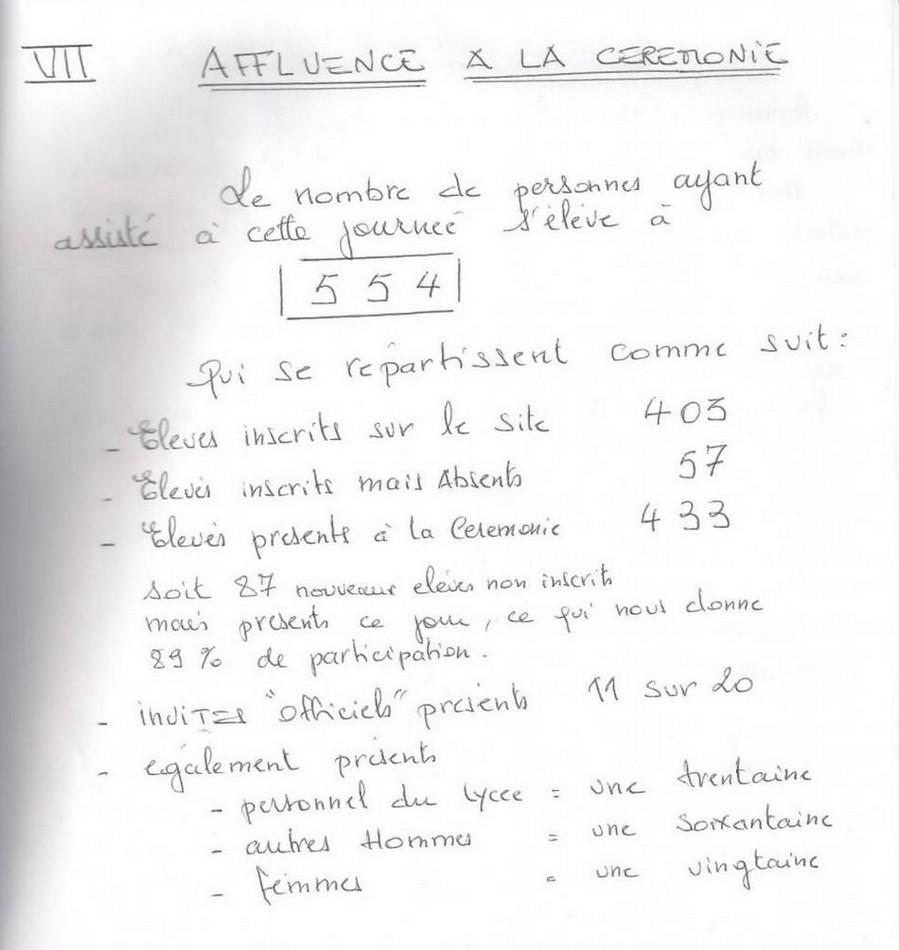 VII AFFLUENCE A LA CEREMONIE
Le nombre de personnes ayant
assisté à cette journée s'élève à
554
Qui se repartissent comme suit :
- Elèves inscrits sur le site 403
- Elevés inscrits mais Absents 57
- Elevès présents à la Cérémonie 433
soit 87 nouveaux elèves non inscrits
mais présents ce jour, ce qui nous donne
89 % de participation.
- invités "officiels" présents 11 sur 20
- egalement présents
- personnel du Lycée = une trentaine
- autres Hommes = une soixantaine
- femmes = une vingtaine